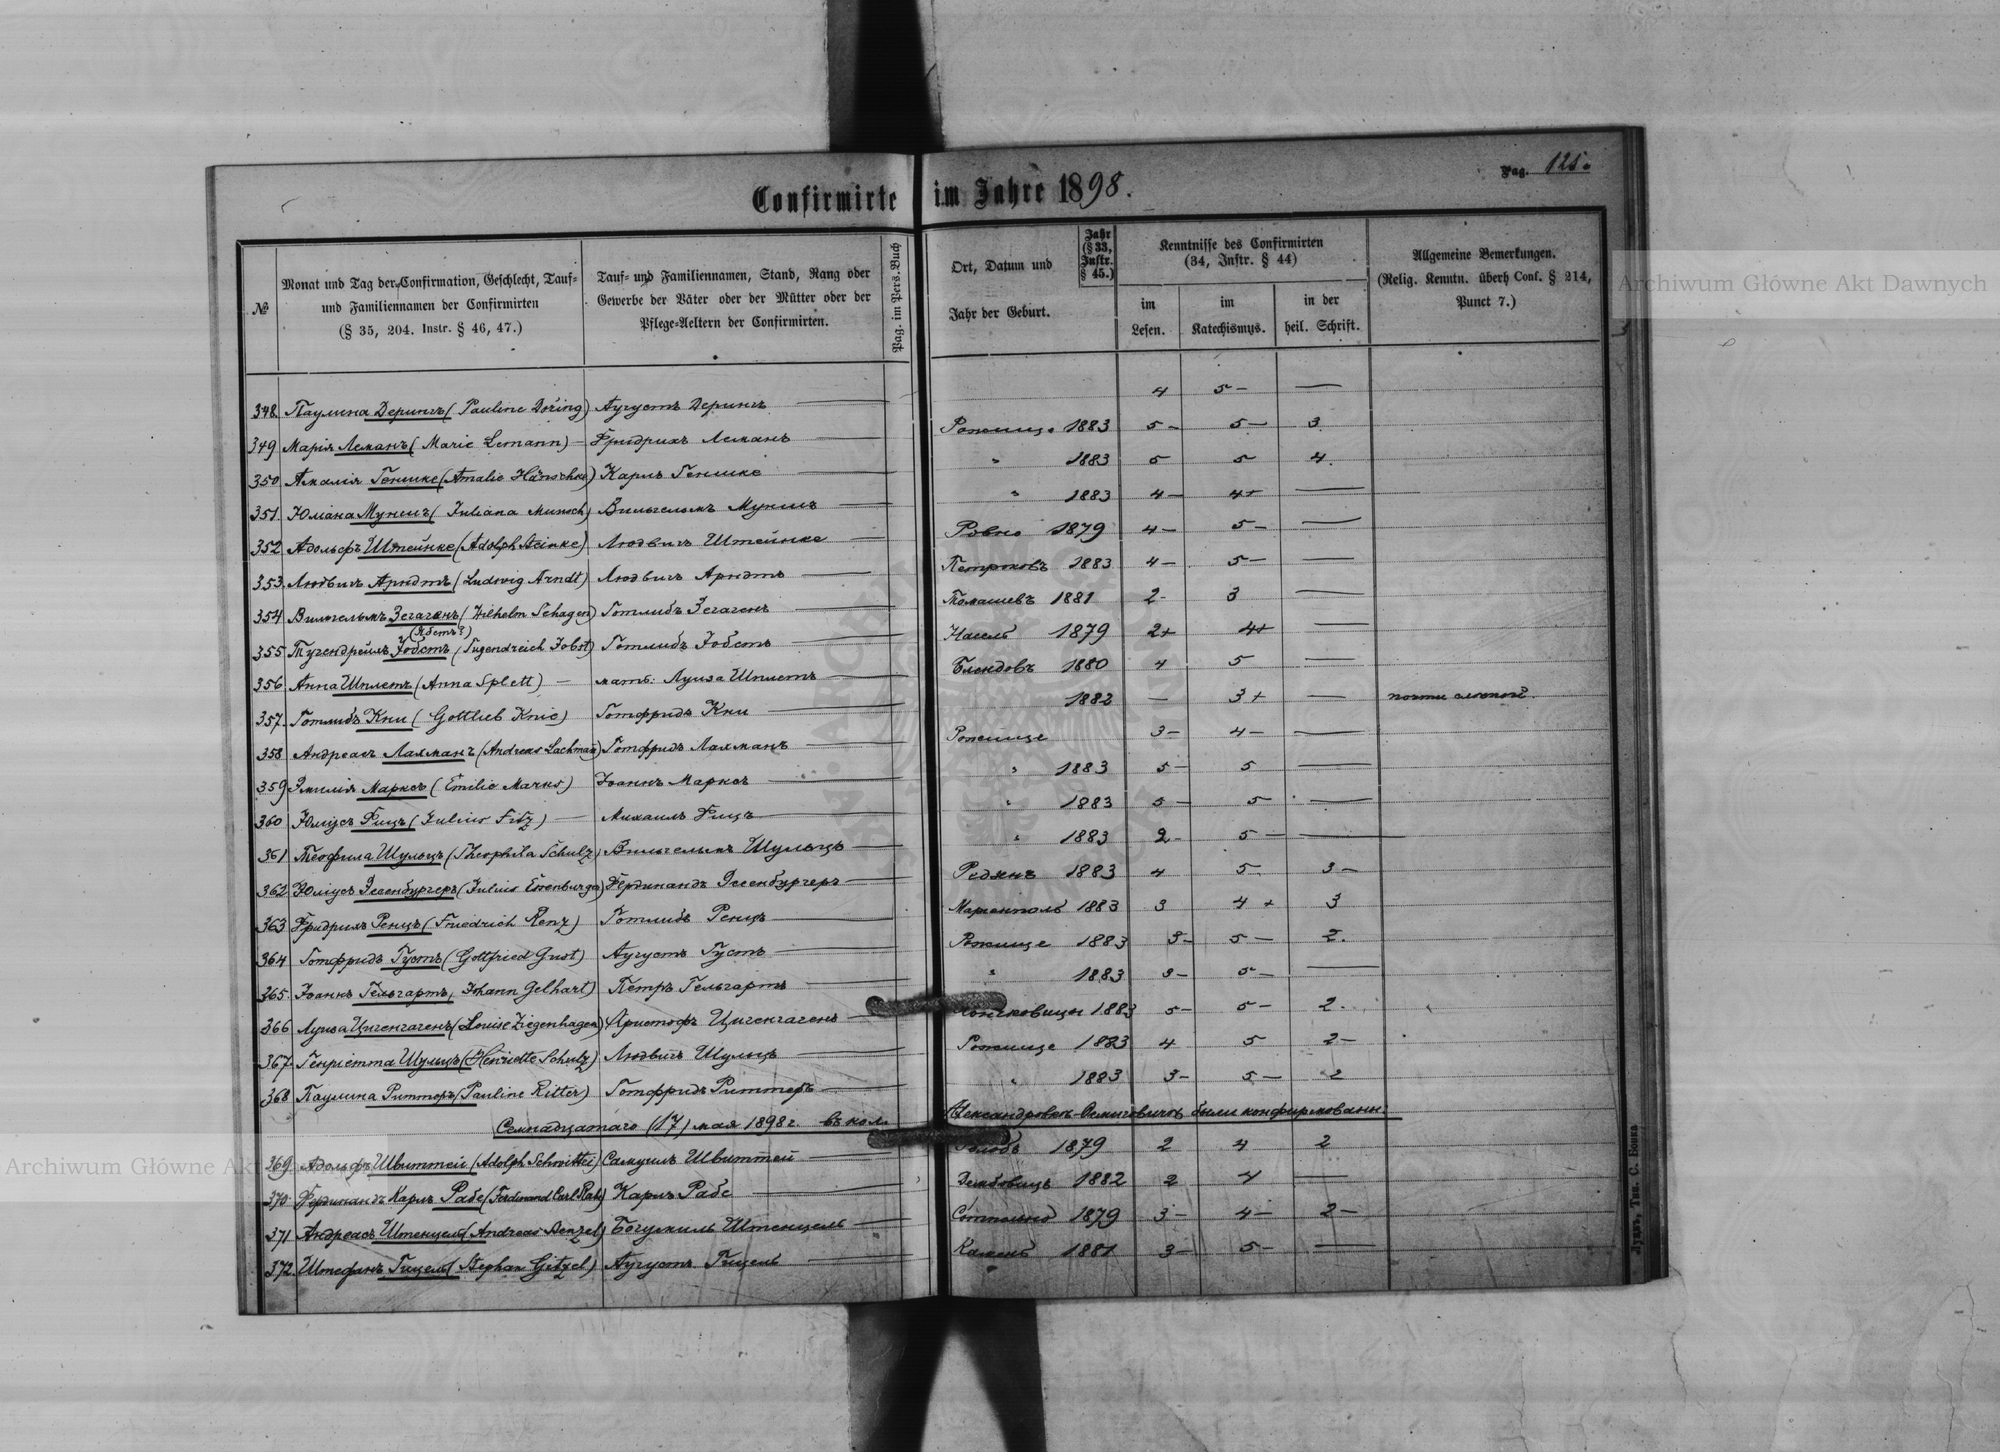 Confirmirte im Jahre 1898.
Pag. 125.
№
Monat und Tag der Confirmation, Geschlecht, Tauf-
und Familiennamen der Confirmirten
(§ 35, 204. Instr. § 46, 47.)
Tauf- und Familiennamen, Stand, Rang oder
Gewerbe der Väter oder der Mütter oder der
Pflege-Aeltern der Confirmirten.
Pag. im Pers.Buch
Ort, Datum und
Jahr der Geburt.
Jahr
(§ 33,
Instr.
§ 45.)
Kenntnisse des Confirmirten
(34, Instr. § 44)
im
Lesen.
im
Katechismus.
in der
heil. Schrift.
Allgemeine Bemerkungen.
(Relig. Kenntn. überh Conf. § 214,
Punct 7.)
Archiwum Główne Akt Dawnych
348. Паулина Дерингъ (Pauline Döring) Августъ Дерингъ 4 5 —
349 Марія Леманъ (Marie Lemann) — Фридрихъ Леманъ Рожище 1883 5 — 5 — 3
350 Амалія Геншке (Amalie Hänschke) Карлъ Геншке " 1883 5 5 4.
351. Юліана Муншъ (Juliana Munsch) Вильгельмъ Муншъ " 1883 4 — 4+ —
352. Адольфъ Штейнке (Adolph Steinke) Людвигъ Штейнке Ровно 1879 4 — 5 — —
353. Людвигъ Арндтъ (Ludwig Arndt) Людвигъ Арндтъ Петроковъ 1883 4 — 5 — —
354 Вильгельмъ Зегагенъ (Wilhelm Sehagen) Готлибъ Зегагенъ Томашевъ 1881 2- 3 —
355. Тугендрейхъ Іобстъ (Tugendreich Jobst) Готлибъ Іобстъ 1879 2+ 4+ —
356. Анна Шплетъ (Anna Splett) — мать: Луиза Шплетъ Блендовъ 1880 4 5 —
357. Готлибъ Кни (Gottlieb Knie) Готфридъ Кни 1882 — 3+ — почти слепой.
358 Андреасъ Лахманъ (Andreas Lachman) Готфридъ Лахманъ Рожище 3 — 4 — —
359 Эмилія Марксъ (Emilie Marks) Іоаннъ Марксъ " 1883 5 — 5 —
360 Юліусъ Фицъ (Julius Fitz) — Михаилъ Фицъ " 1883 5 — 5 —
361 Теофила Шульцъ (Theophila Schulz) Вильгельмъ Шульцъ " 1883 2 — 5 — —
362 Юліусъ Эсенбургеръ (Julius Esenburger) Фердинандъ Эсенбургеръ 1883 4 5 3 —
363 Фридрихъ Ренцъ (Friedrich Renz) Готлибъ Ренцъ Маріенполь 1883 3 4 + 3
364 Готфридъ Густъ (Gottfried Gust) Августъ Густъ Рожище 1883 3 — 5 — 2.
365. Іоаннъ Гельгартъ, Johann Gelhart) Петръ Гельгартъ " 1883 3 — 5 — —
366 Луиза Цигенгагенъ (Louise Ziegenhagen) Христофъ Цигенгагенъ 1883 5 — 5 — 2.
367 Генріетта Шульцъ (Henriette Schulz) Людвигъ Шульцъ Рожище 1883 4 5 2 —
368 Паулина Риттеръ (Pauline Ritter) Готфридъ Риттеръ " 1883 3 — 5 — 2
Семнадцатаго (17) мая 1898 г. въ кол. были конфирмованы
369. Адольфъ Швиттей (Adolph Schwittei) Самуилъ Швиттей 1879 2 4 2
370 Фердинандъ Карлъ Рабе (Ferdinand Carl Rabe) Карлъ Рабе 1882 2 4 —
371 Андреасъ Штенцель (Andreas Stenzel) Богумилъ Штенцель 1879 3 — 4 — 2 —
372. Штефанъ Гицель (Stephan Gitzel) Августъ Гицель Камень 1881 3 — 5 — —
Archiwum Główne Akt Dawnych